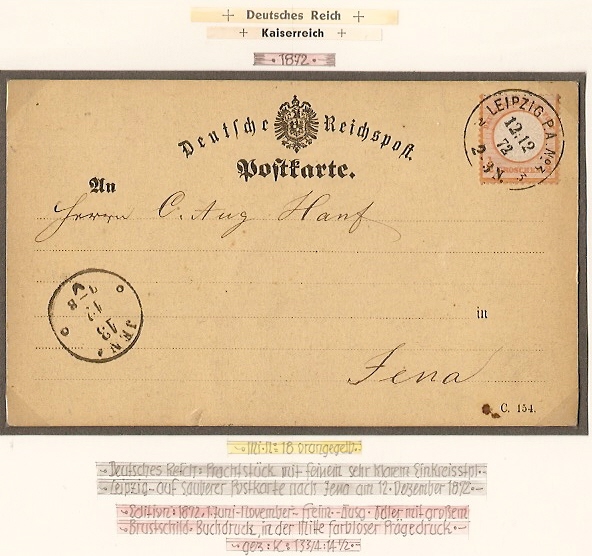 Deutsches Reich
Kaiserreich
1872
Deutsche Reichspost.
Postkarte.
LEIPZIG P.A. No 3
12.12
72
2-3 N.
An
Herrn C. Aug Hanf
JENA
13
12
in
Jena
C. 154.
Mi-N= 18 orangegelb
Deutsches Reich= Prachtstück mit feinem sehr klarem Einkreisstpl.
Leipzig- auf sauberer Postkarte nach Jena am 12. Dezember 1872
Edition= 1872, 1. Juni-November- Freim- Ausg= Adler mit großem
Brustschild= Buchdruck, in der Mitte farbloser Prägedruck
gez= K= 13 3/4 : 14 1/2